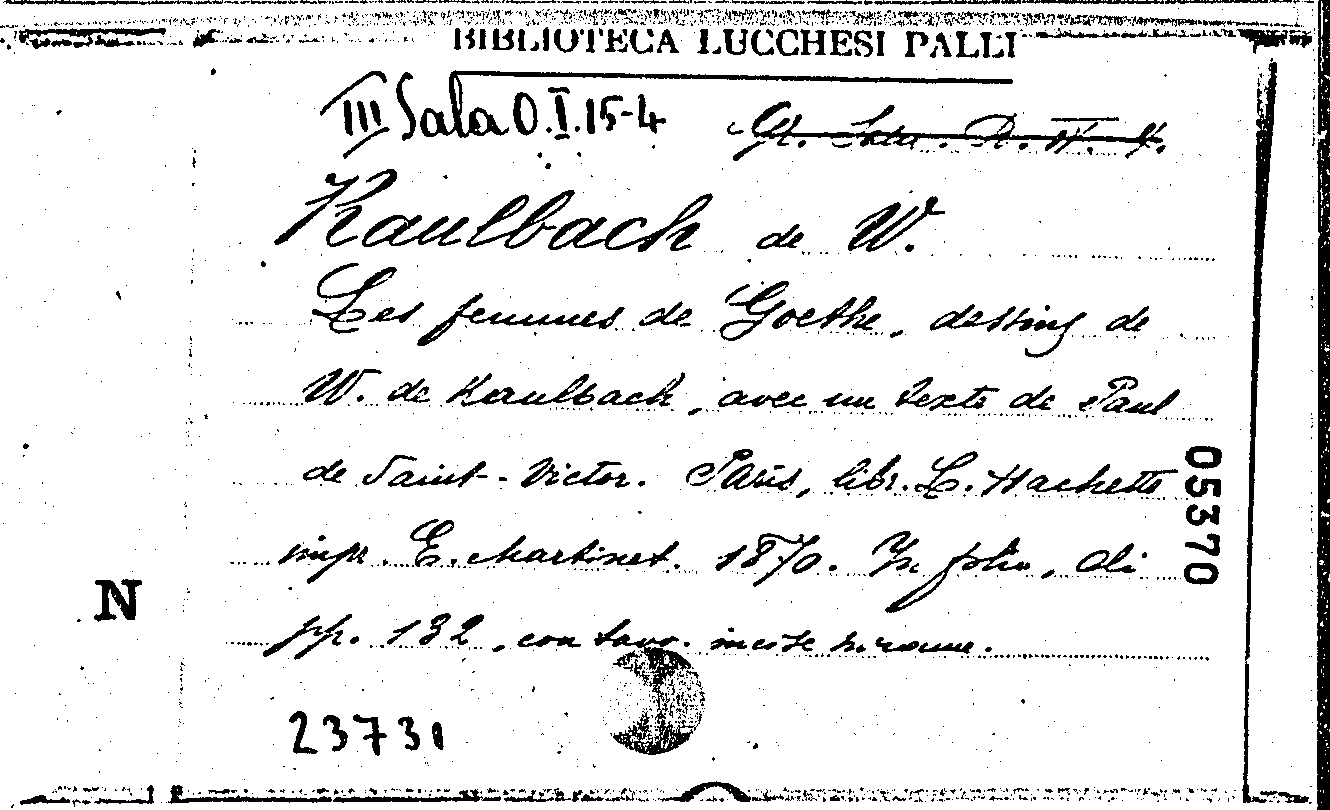 BIBLIOTECA LUCCHESI PALLI
III Sala O.I.15-4 Gr. Sala. R. VI. 4.
Kaulbach de W.
Les femmes de Goethe, dessins de
W. de Kaulbach, avec un texte de Paul
de Saint-Victor. Paris, libr. L. Hachette
impr. E. Martinet. 1870. In folio, di
pp. 132, con tavv. incise in rame.
05370
N
23731